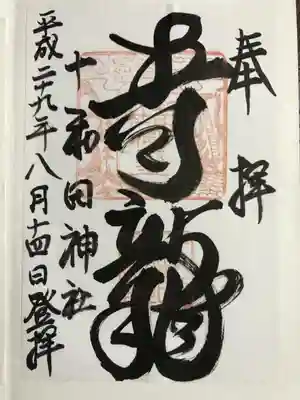 奉拝
青龍
十和田神社
平成二十九年八月十四日登拝